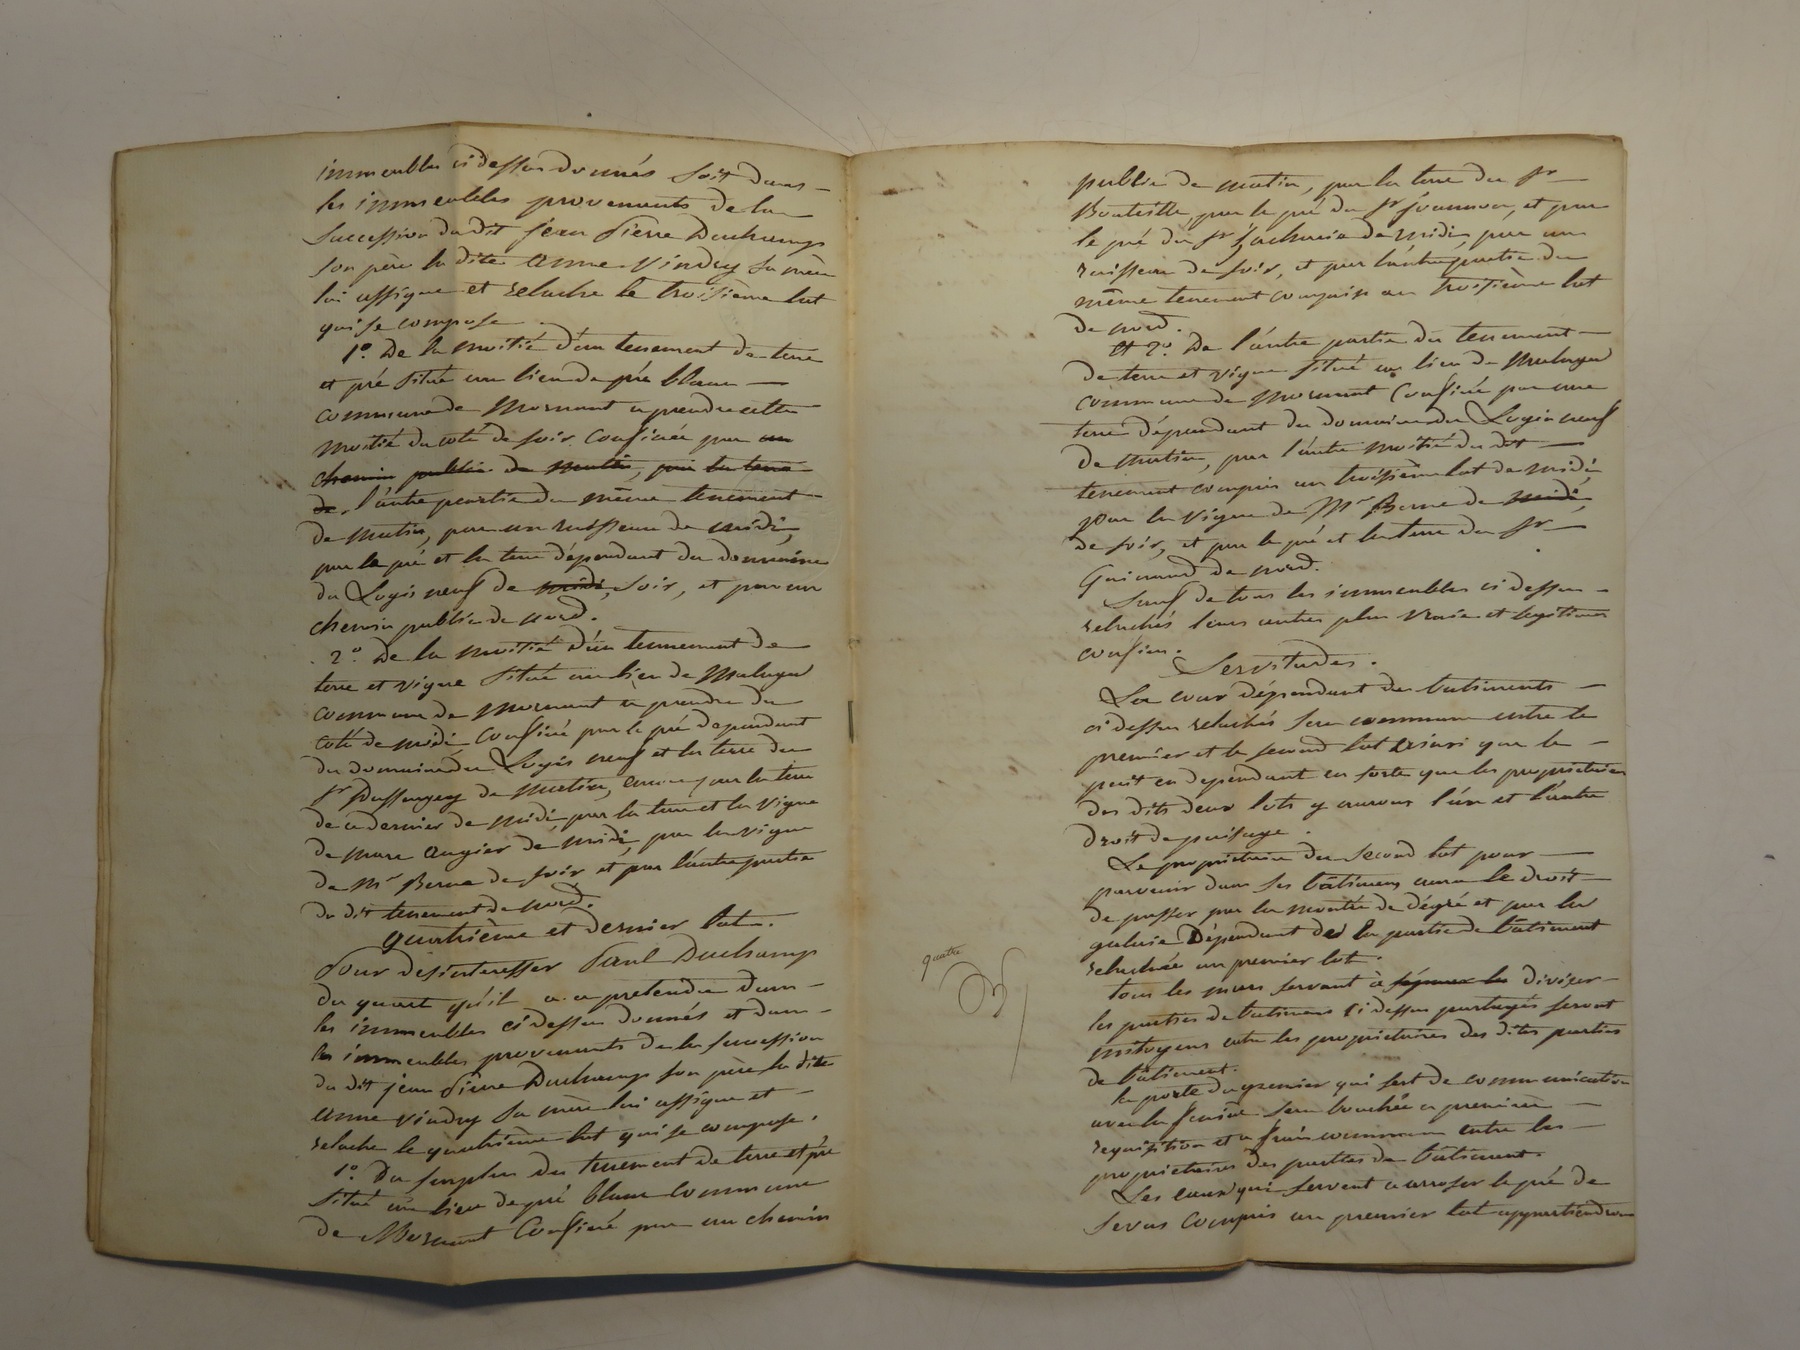 immeubles ci dessus donnés soit dans
les immeubles provenants de la
succession du dit jean Pierre Duchamp
son père la dite anne Vindry sa mère
lui assigne et relache le troisième lot
qui se compose
1º. De la moitié d'un tenement de terre
et pré situé au lieu de pré blanc
commune de Mornant a prendre cette
moitié du coté de soir. Confinée par un
chemin public de matin, par la terre
de l'autre partie du même tenement
de matin, par un ruisseau de midi,
par le pré et la terre dépendant du domaine
du Logis neuf de midi, soir, et par un
chemin public de nord.
2º. De la moitié d'un tennement de
terre et vigne situé au lieu de
commune de Mornant a prendre du
coté de midi Confiné par le pré dependant
du domaine du Logis neuf et la terre du
Sr de matin, encore par la terre
de ce dernier de midi par la terre et la vigne
de marc augier de midi, par la vigne
de Mr Berne de soir et par l'autre partie
du dit tenement de nord.
quatrième et dernier lot.
Pour desinteresser Paul Duchamp
du quart qu'il a a pretendre dans
les immeubles ci dessus donnés et dans
les immeubles provenants de la succession
du dit jean Pierre Duchamp son père la dite
anne Vindry sa mère lui assigne et
relache le quatrième lot qui se compose.
1º. Du surplus du tenement de terre et pré
situé au lieu de pré blanc Commune
de Mornant Confiné par un chemin
public de matin, par la terre du Sr
Bouteille, par le pré du Sr et par
le pré du Sr Zacharie de midi, par un
ruisseau de soir, et par l'autre partie du
même tenement compris au troisième lot
de nord.
et 2º. De l'autre partie du tenement
de terre et vigne situé au lieu de
commune de Mornant Confinée par une
terre dépendant du domaine du Logis neuf
de matin, par l'autre moitié du dit
tenement compris au troisième lot de midi,
par la vigne de Mr Berne de midi,
de soir, et par le pré et la terre du Sr
de nord.
Sauf de tous les immeubles ci dessus
relachés leurs autres plus vrais et legitimes
confins.
Servitudes.
La cour dépendant des batiments
ci dessus relachés sera commune entre le
premier et le second lot ainsi que le
puit en dependant en sorte que les proprietaires
des dits deux lots y auront l'un et l'autre
droit de puisage.
Le proprietaire du second lot pour
parvenir dans ses bâtimens aura le droit
de passer par la montée de dégré et par la
galerie Dépendant de la partie de bâtiment
relachée au premier lot.
tous les murs servant à séparer les diviser
les parties de batimens ci dessus partagés seront
mitoyens entre les proprietaires des dites parties
de bâtiment.
la porte du grenier qui sert de communication
avec la sera bouchée a première
requisition et a frais communs entre les
proprietaires des parties de bâtiment.
Les eaux qui servent a arroser le pré de
compris au premier lot appartiendront
quatre